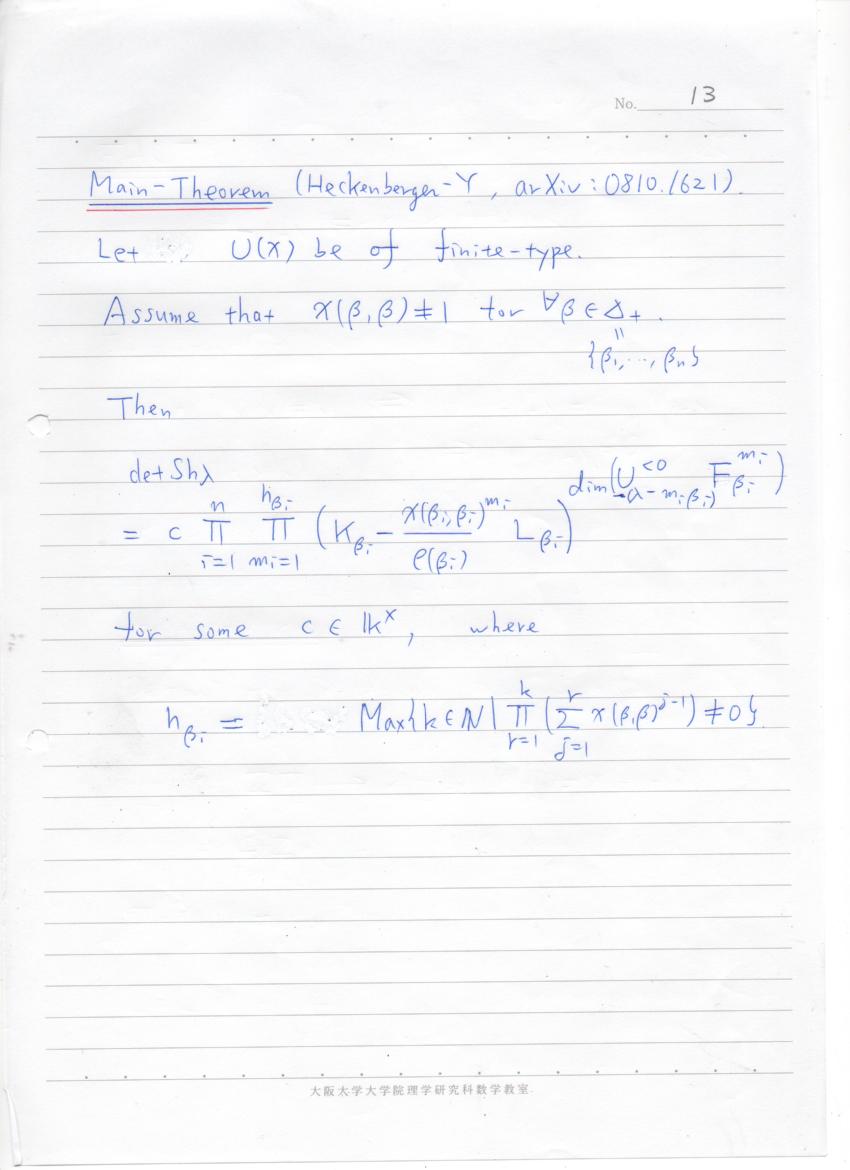 No. 13
Main-Theorem (Heckenberger-Y, arXiv:0810.1621).
Let U(χ) be of finite-type.
Assume that χ(β,β)≠1 for ∀β∈Δ₊.
"
{β₁,…,βₙ}
Then
det Shλ
= c ∏_{i=1}^{n} ∏_{m_i=1}^{h_{β_i}} (K_{β_i} - \frac{χ(β_i,β_i)^{m_i}}{ρ(β_i)} L_{β_i})^{dim(U^{<0}_{-λ-m_iβ_i} F_{β_i}^{m_i})}
for some c ∈ 𝕜^×, where
h_{β_i} = Max{k∈ℕ | ∏_{r=1}^{k} (∑_{j=1}^{r} χ(β,β)^{j-1}) ≠0}.
大阪大学大学院理学研究科数学教室